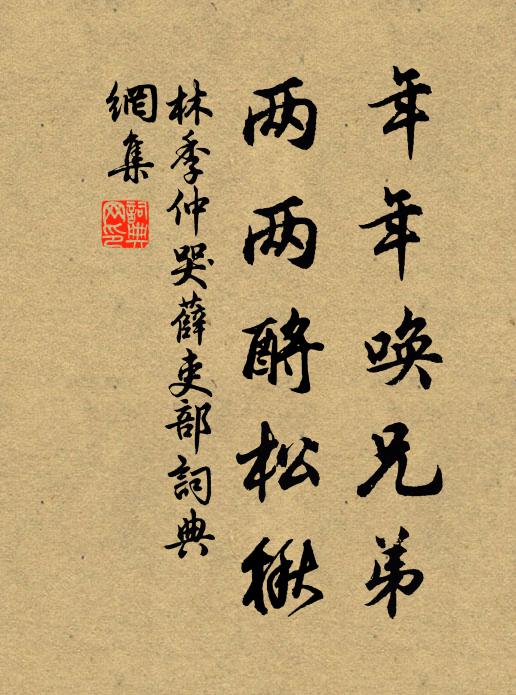 年年唤兄弟
两两酹松楸
林季仲哭薛吏部詞典
網集
詞典
网印